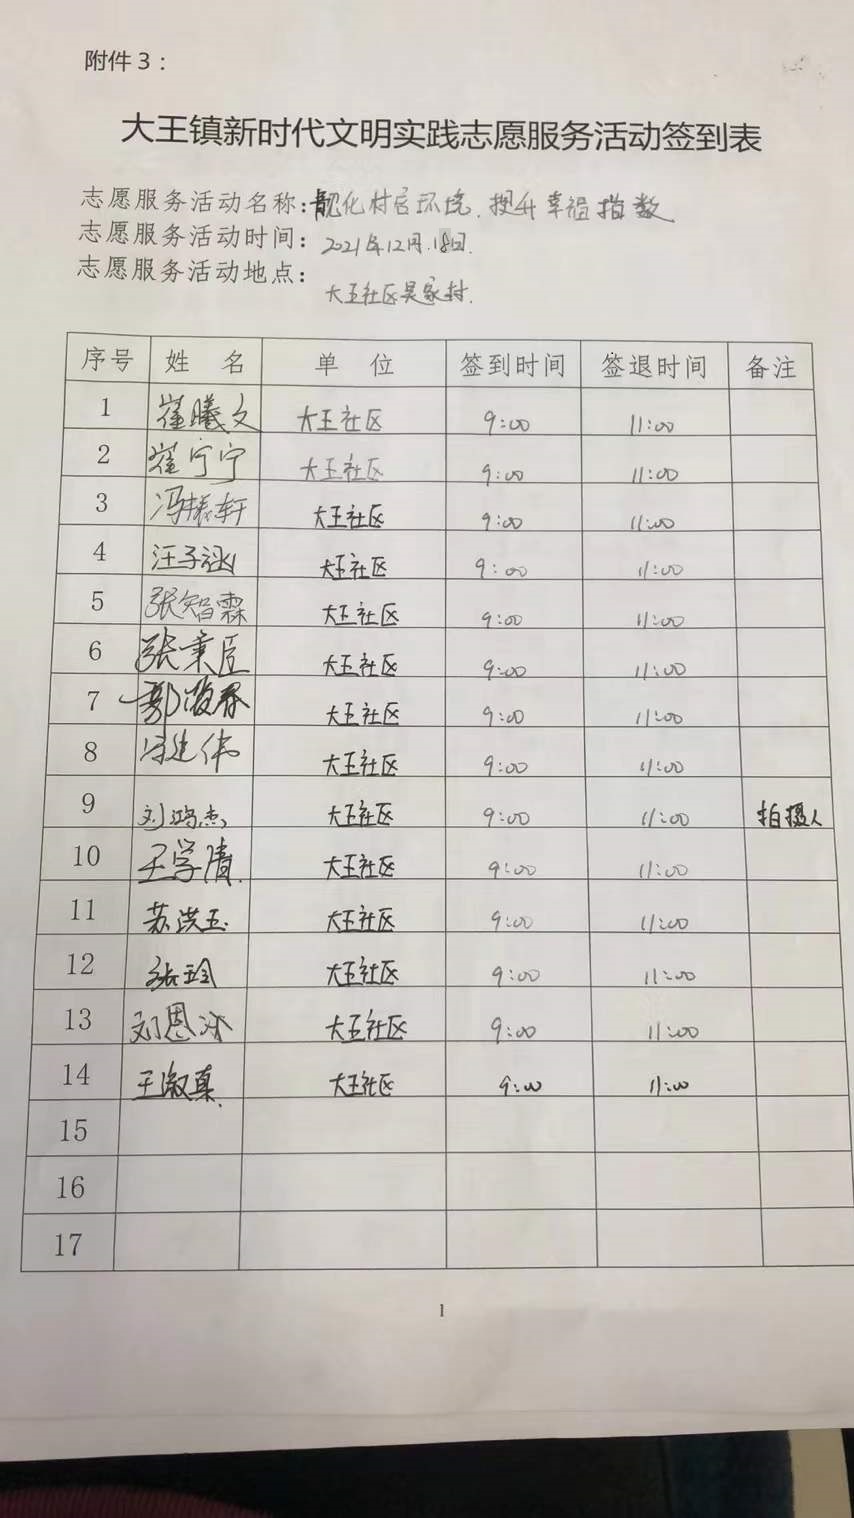 附件3：
大王镇新时代文明实践志愿服务活动签到表
志愿服务活动名称：靓化村居环境，提升幸福指数
志愿服务活动时间：2021年12月18日.
志愿服务活动地点：大王社区吴家村.
序号 姓 名 单 位 签到时间 签退时间 备注
1 崔曦文 大王社区 9:00 11:00
2 崔宁宁 大王社区 9:00 11:00
3 冯振轩 大王社区 9:00 11:00
4 汪子涵 大王社区 9:00 11:00
5 张智霖 大王社区 9:00 11:00
6 张秉臣 大王社区 9:00 11:00
7 郭 大王社区 9:00 11:00
8 冯建伟 大王社区 9:00 11:00
9 刘鸿杰 大王社区 9:00 11:00 拍摄人
10 王学清. 大王社区 9:00 11:00
11 苏洪玉 大王社区 9:00 11:00
12 张玲 大王社区 9:00 11:00
13 刘恩 大王社区 9:00 11:00
14 王淑真. 大王社区 9:00 11:00
15
16
17
1